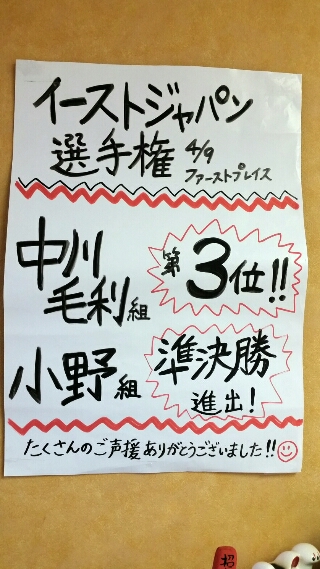 イーストジャパン
選手権 4/9
ファーストプレイス
中川
毛利組
第3位!!
小野組
準決勝
進出!
たくさんのご声援ありがとうございました!!
招